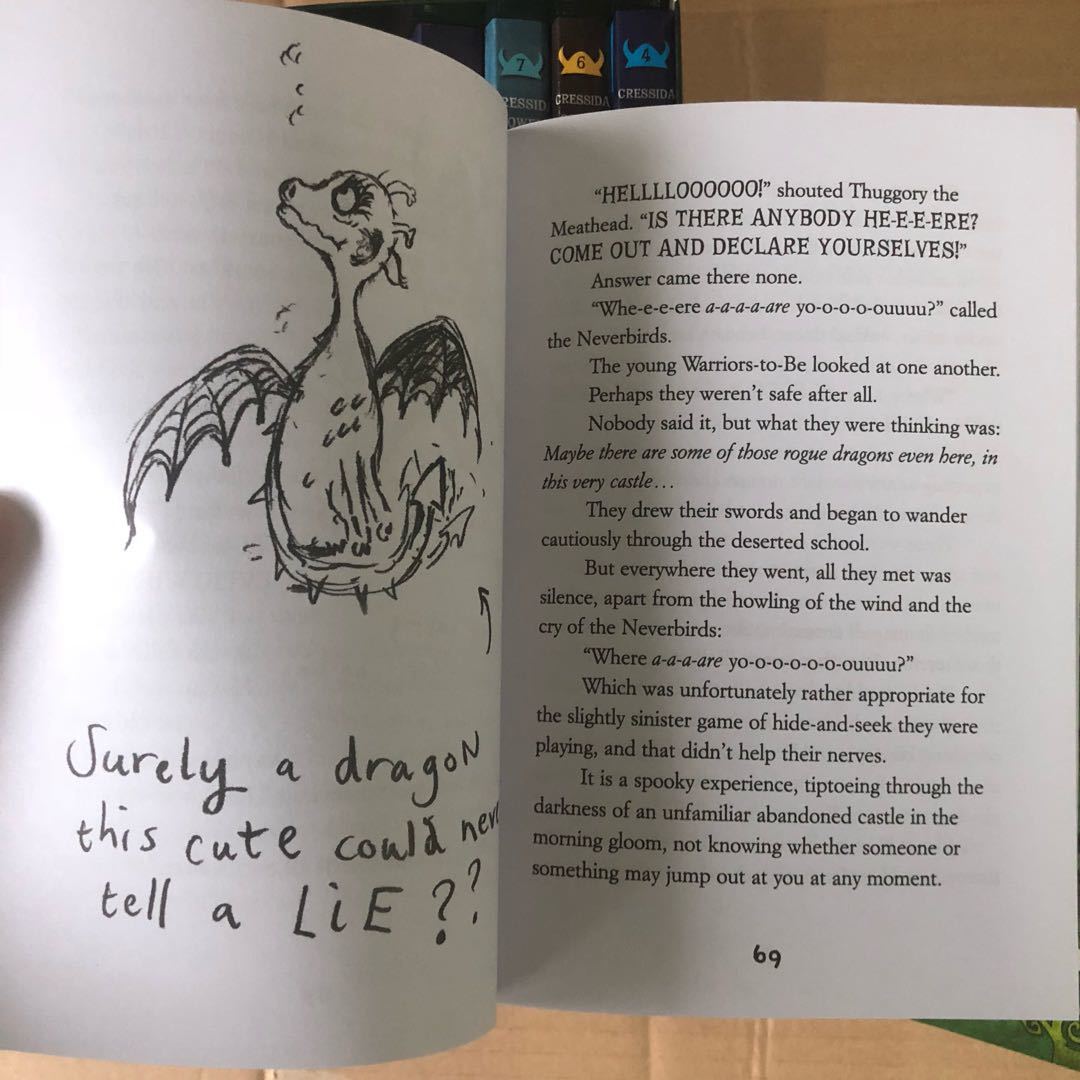 7
6
4
CRESSIDA
CRESSIDA
Surely a dragon
this cute could
tell a LiE??
"HELLLLOOOOOO!" shouted Thuggory the
Meathead. "IS THERE ANYBODY HE-E-E-ERE?
COME OUT AND DECLARE YOURSELVES!"
Answer came there none.
"Whe-e-e-ere a-a-a-a-are yo-o-o-o-ouuuu?" called
the Neverbirds.
The young Warriors-to-Be looked at one another.
Perhaps they weren't safe after all.
Nobody said it, but what they were thinking was:
Maybe there are some of those rogue dragons even here, in
this very castle…
They drew their swords and began to wander
cautiously through the deserted school.
But everywhere they went, all they met was
silence, apart from the howling of the wind and the
cry of the Neverbirds:
"Where a-a-a-are yo-o-o-o-o-o-ouuuu?"
Which was unfortunately rather appropriate for
the slightly sinister game of hide-and-seek they were
playing, and that didn't help their nerves.
It is a spooky experience, tiptoeing through the
darkness of an unfamiliar abandoned castle in the
morning gloom, not knowing whether someone or
something may jump out at you at any moment.
69